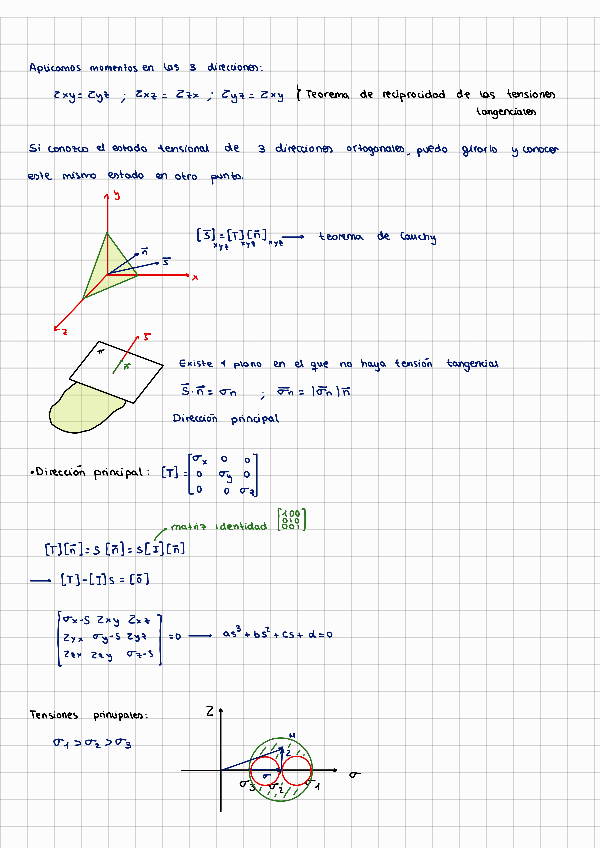 Aplicamos momentos en las 3 direcciones:
Zxy = Zyz ; Zxz = Zzx ; Zyz = Zxy } Teorema de reciprocidad de las tensiones
tangenciales
Si conozco el estado tensional de 3 direcciones ortogonales, puedo girarlo y conocer
este mismo estado en otro punto.
y
n
s
x
z
[S]xyz = [T]xyz [n]xyz → teorema de Cauchy
π
s
n
Existe 1 plano en el que no haya tensión tangencial
S · n = σn ; σn = |σn| n
Dirección principal
• Dirección principal: [T] = [σx 0 0
0 σy 0
0 0 σz]
matriz identidad [1 0 0
0 1 0
0 0 1]
[T][n] = S [n] = S[I][n]
→ [T] - [I] S = [0]
[σx-S Zxy Zxz
Zyx σy-S Zyz
Zzx Zzy σz-S] = 0 → as³ + bs² + cs + d = 0
Tensiones principales:
σ1 > σ2 > σ3
Z
M
Z
σ
σ3 σ2 σ1
σ